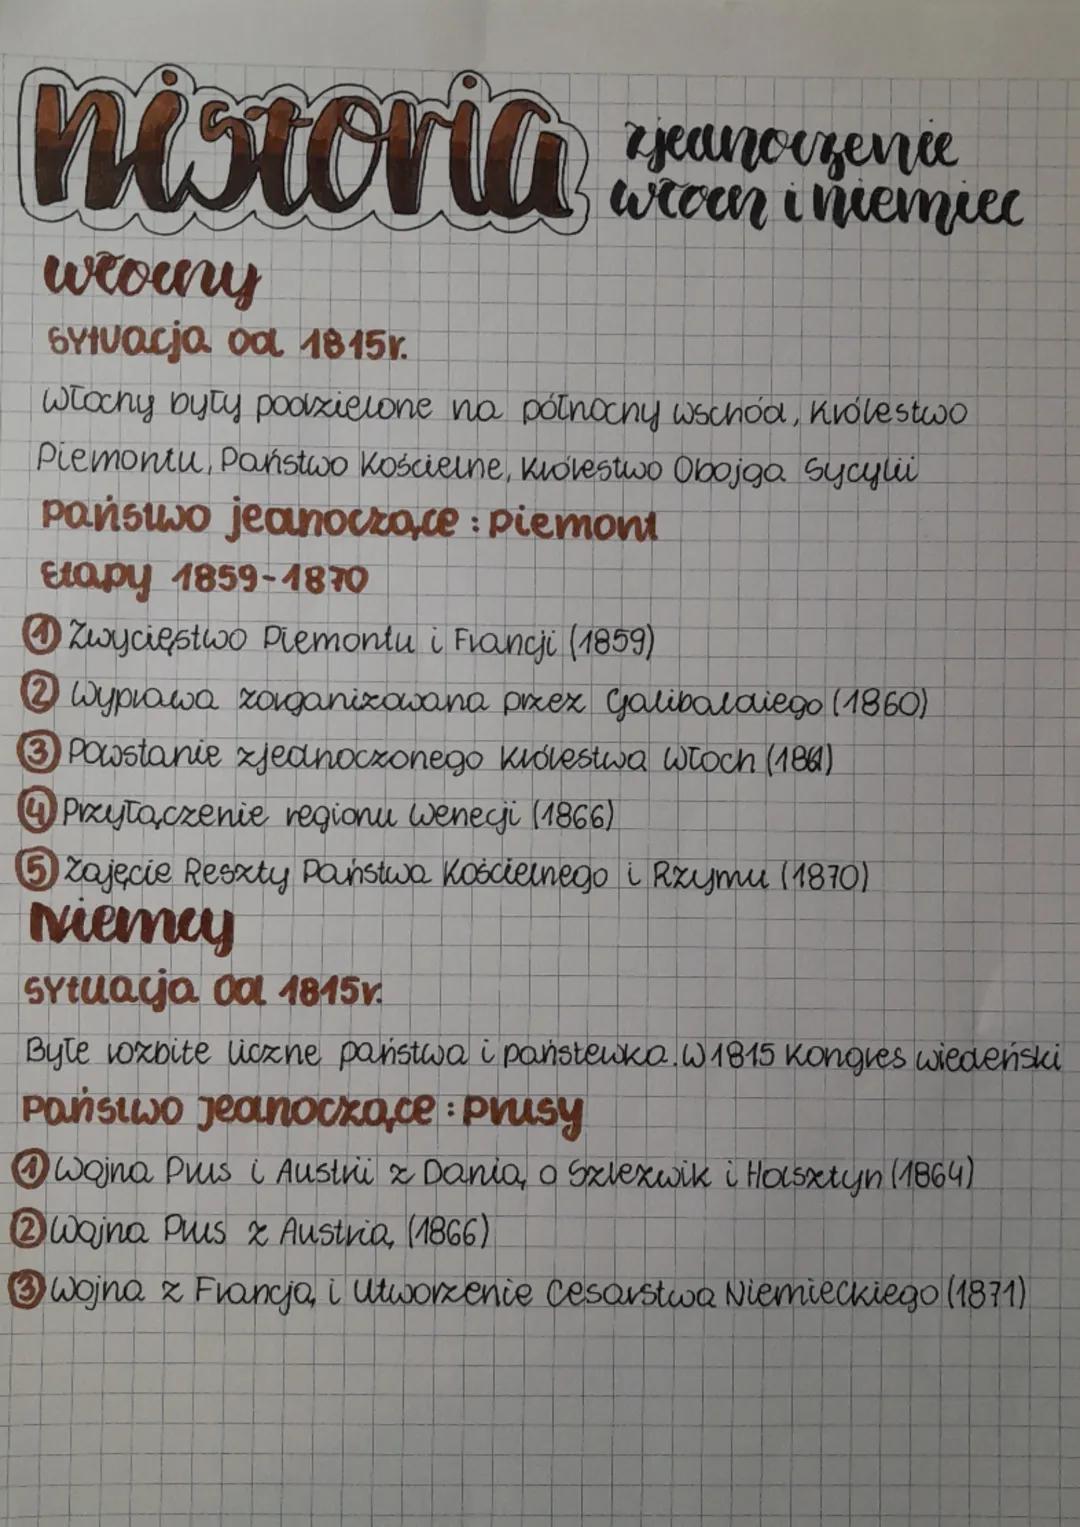 historia
zjednoczenie
włoch i niemiec
włochy
sytuacja od 1815r.
Włochy były podzielone na północny wschód, Królestwo
Piemontu, Państwo Kościelne, Królestwo Obojga Sycylii
Państwo jednoczące : Piemont
Etapy 1859-1870
① Zwycięstwo Piemontu i Francji (1859)
② Wyprawa zorganizowana przez Galibaldiego (1860)
③ Powstanie zjednoczonego Królestwa Włoch (1861)
④ Przyłączenie regionu Wenecji (1866)
⑤ Zajęcie Reszty Państwa Kościelnego i Rzymu (1870)
Niemcy
sytuacja od 1815r.
Byłe rozbite liczne państwa i państewka. W 1815 Kongres wiedeński
Państwo jednoczące : prusy
① Wojna Prus i Austrii z Danią o Szlezwik i Holsztyn (1864)
② Wojna Prus z Austrią (1866)
③ Wojna z Francją i Utworzenie Cesarstwa Niemieckiego (1871)